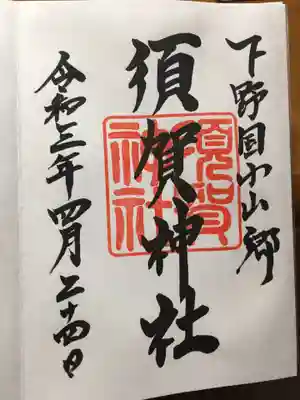 下野国小山郷
須賀神社
令和三年四月二十四日
須賀
神社